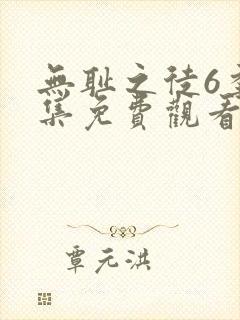 無耻之徒6季
集免費觀看
覃元洪